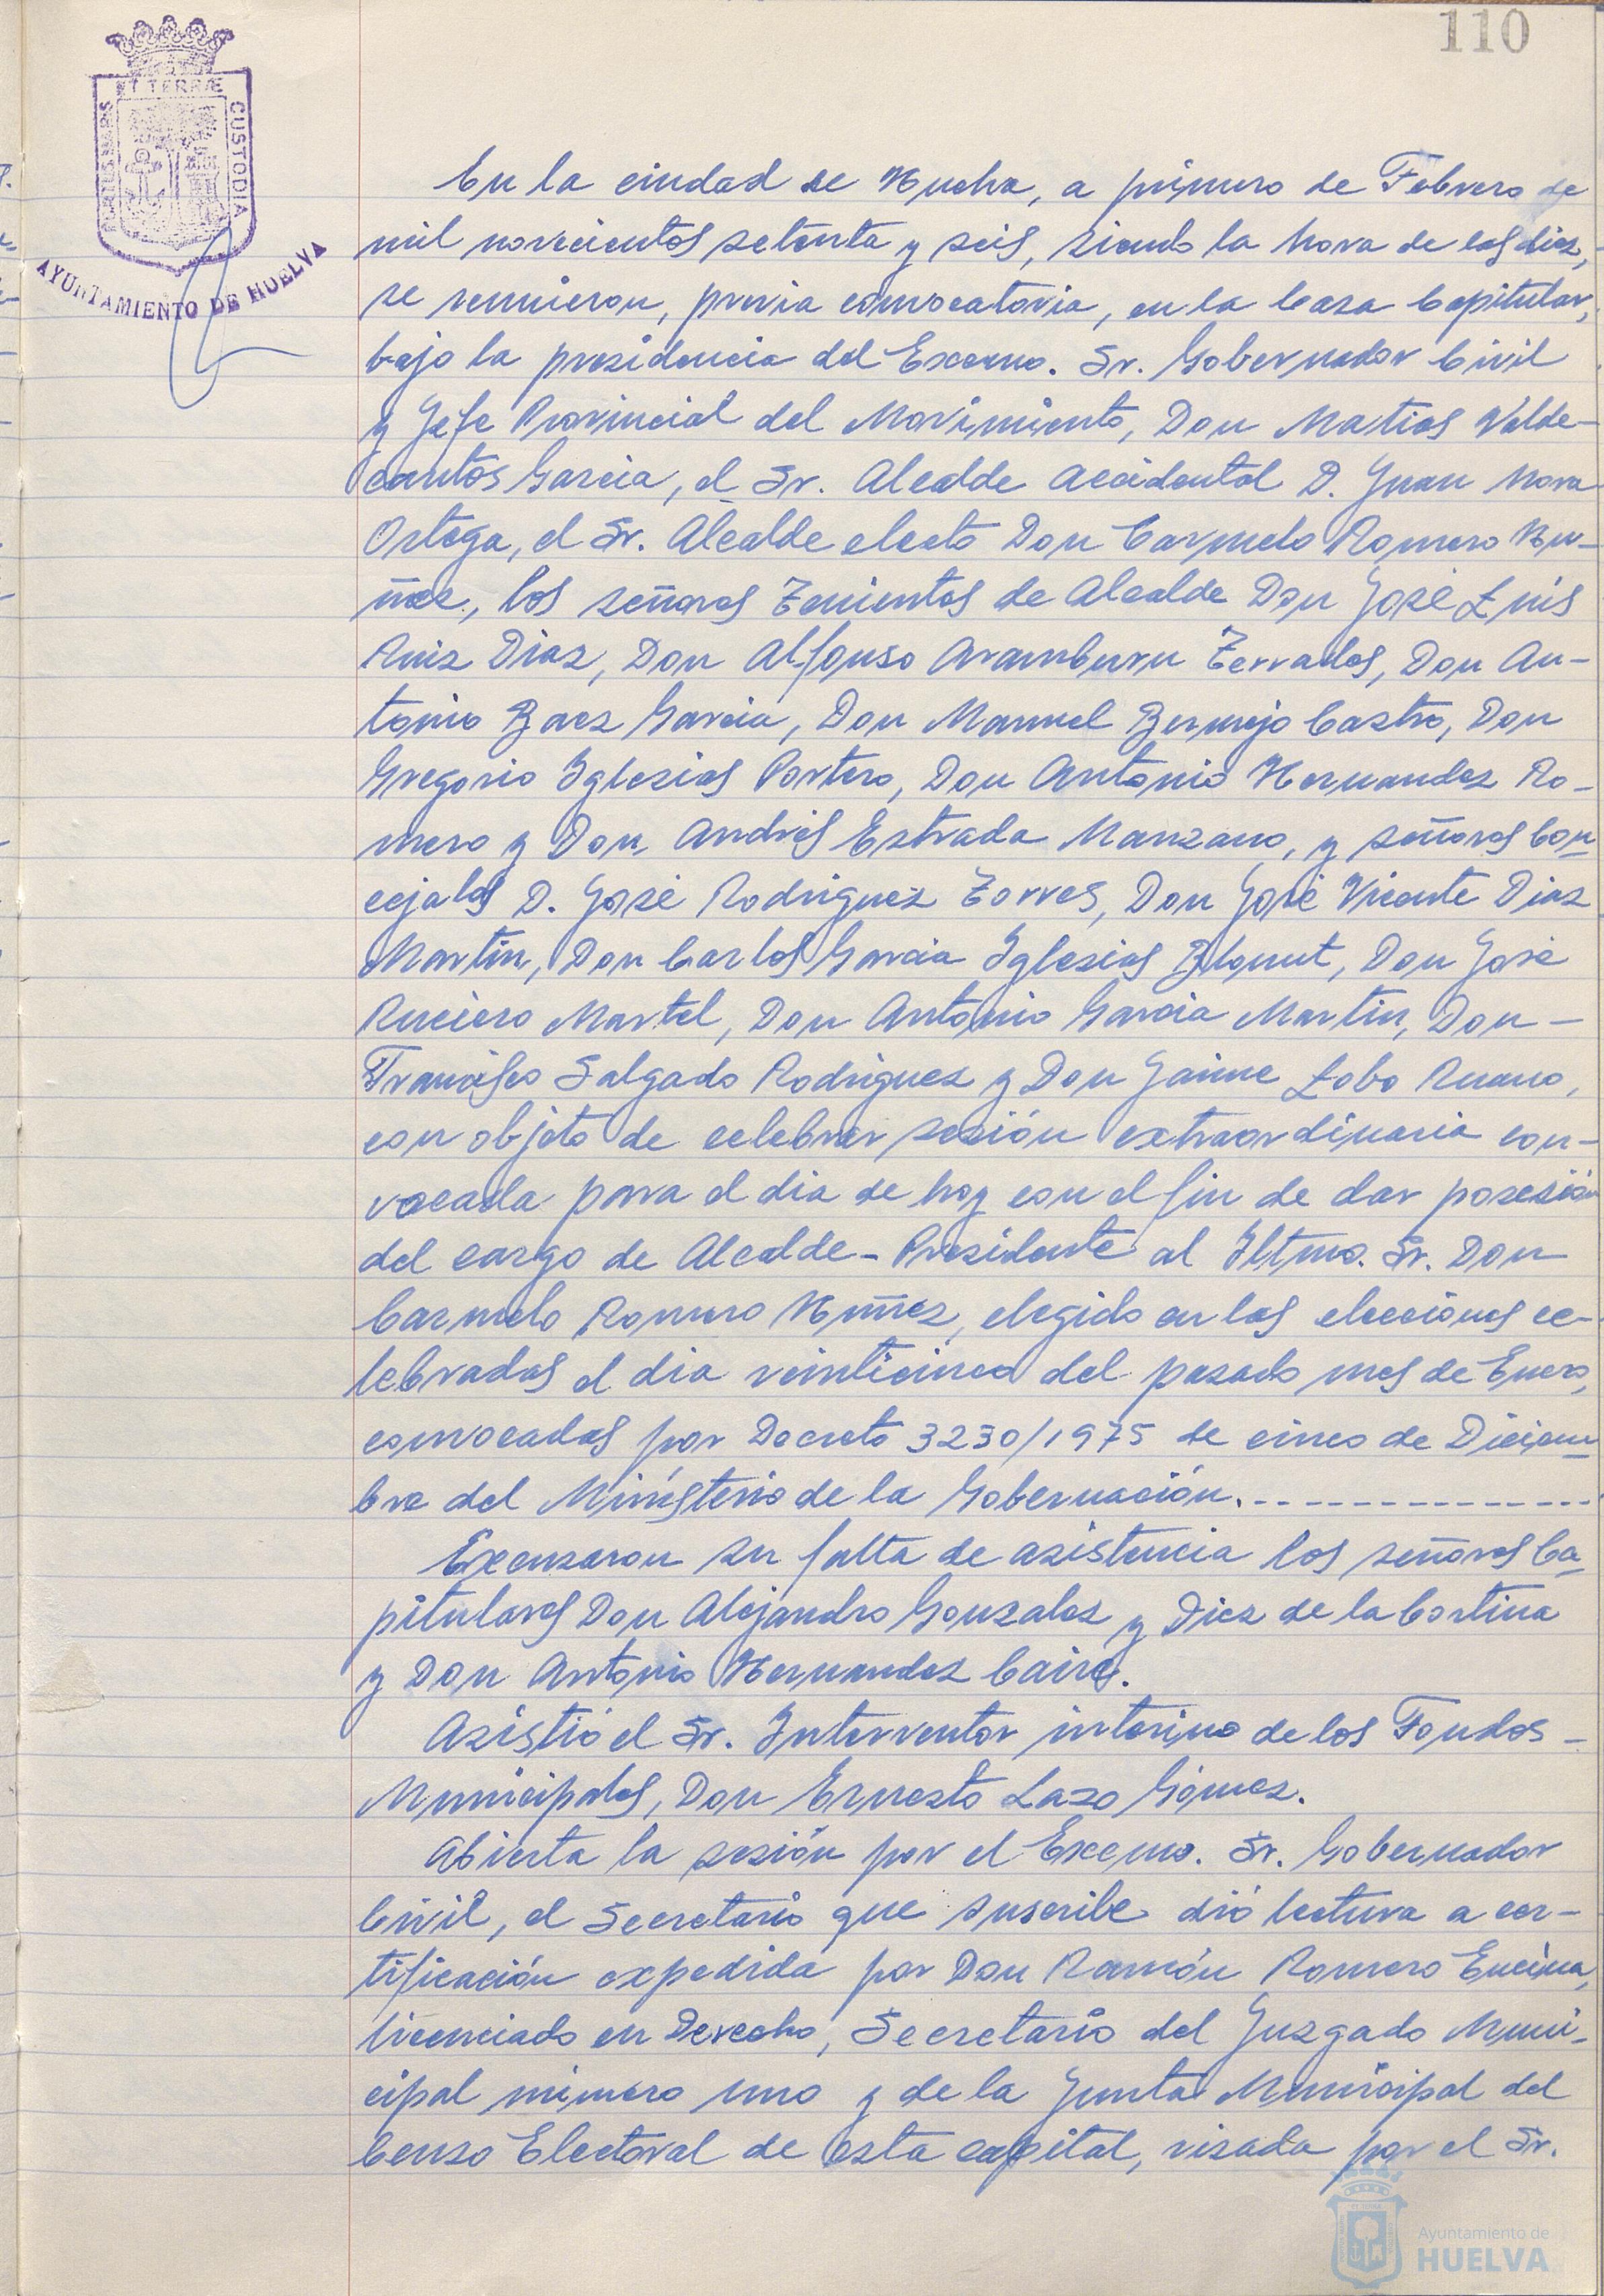 110
PORTUS MARIS
ET TERRÆ
CUSTODIA
AYUNTAMIENTO DE HUELVA
En la ciudad de Huelva, a primero de Febrero de
mil novecientos setenta y seis, siendo la hora de las diez,
se reunieron, previa convocatoria, en la Casa Capitular,
bajo la presidencia del Excemo. Sr. Gobernador Civil
y Jefe Provincial del Movimiento, Don Matias Valde-
cantos Garcia, el Sr. Alcalde Accidental D. Juan Mora
Ortega, el Sr. Alcalde electo Don Carmelo Romero Nu-
ñez, los señores Tenientes de Alcalde Don José Luis
Ruiz Diaz, Don Alfonso Aramburu Terrados, Don An-
tonio Baez Garcia, Don Manuel Bermejo Castro, Don
Gregorio Iglesias Portero, Don Antonio Hernandez Ro-
mero y Don Andrés Estrada Manzano, y señores Con-
cejales D. José Rodriguez Torres, Don José Vicente Diaz
Martin, Don Carlos Garcia Iglesias Blanut, Don José
Ruciero Martel, Don Antonio Garcia Martin, Don -
Francisco Salgado Rodriguez y Don Jaime Lobo Ruano,
con objeto de celebrar sesión extraordinaria con-
vocada para el dia de hoy con el fin de dar posesión
del cargo de Alcalde-Presidente al Iltmo. Sr. Don
Carmelo Romero Nuñez, elegido en las elecciones ce-
lebradas el dia veinticinco del pasado mes de Enero,
convocadas por Decreto 3230/1975 de cinco de Diciem-
bre del Ministerio de la Gobernación. - - - - - - - - - - - - - - -
Excusaron su falta de asistencia los señores Ca-
pitulares Don Alejandro Gonzalez y Diez de la Cortina
y Don Antonio Hernandez Caire.
Asistió el Sr. Interventor interino de los Fondos -
Municipales, Don Ernesto Lazo Gómez.
Abierta la sesión por el Excemo. Sr. Gobernador
Civil, el Secretario que suscribe dió lectura a cer-
tificación expedida por Don Ramón Romero Encina,
licenciado en Derecho, Secretario del Juzgado Muni-
cipal número uno y de la Junta Municipal del
Censo Electoral de esta capital, visada por el Sr.
Ayuntamiento de
HUELVA